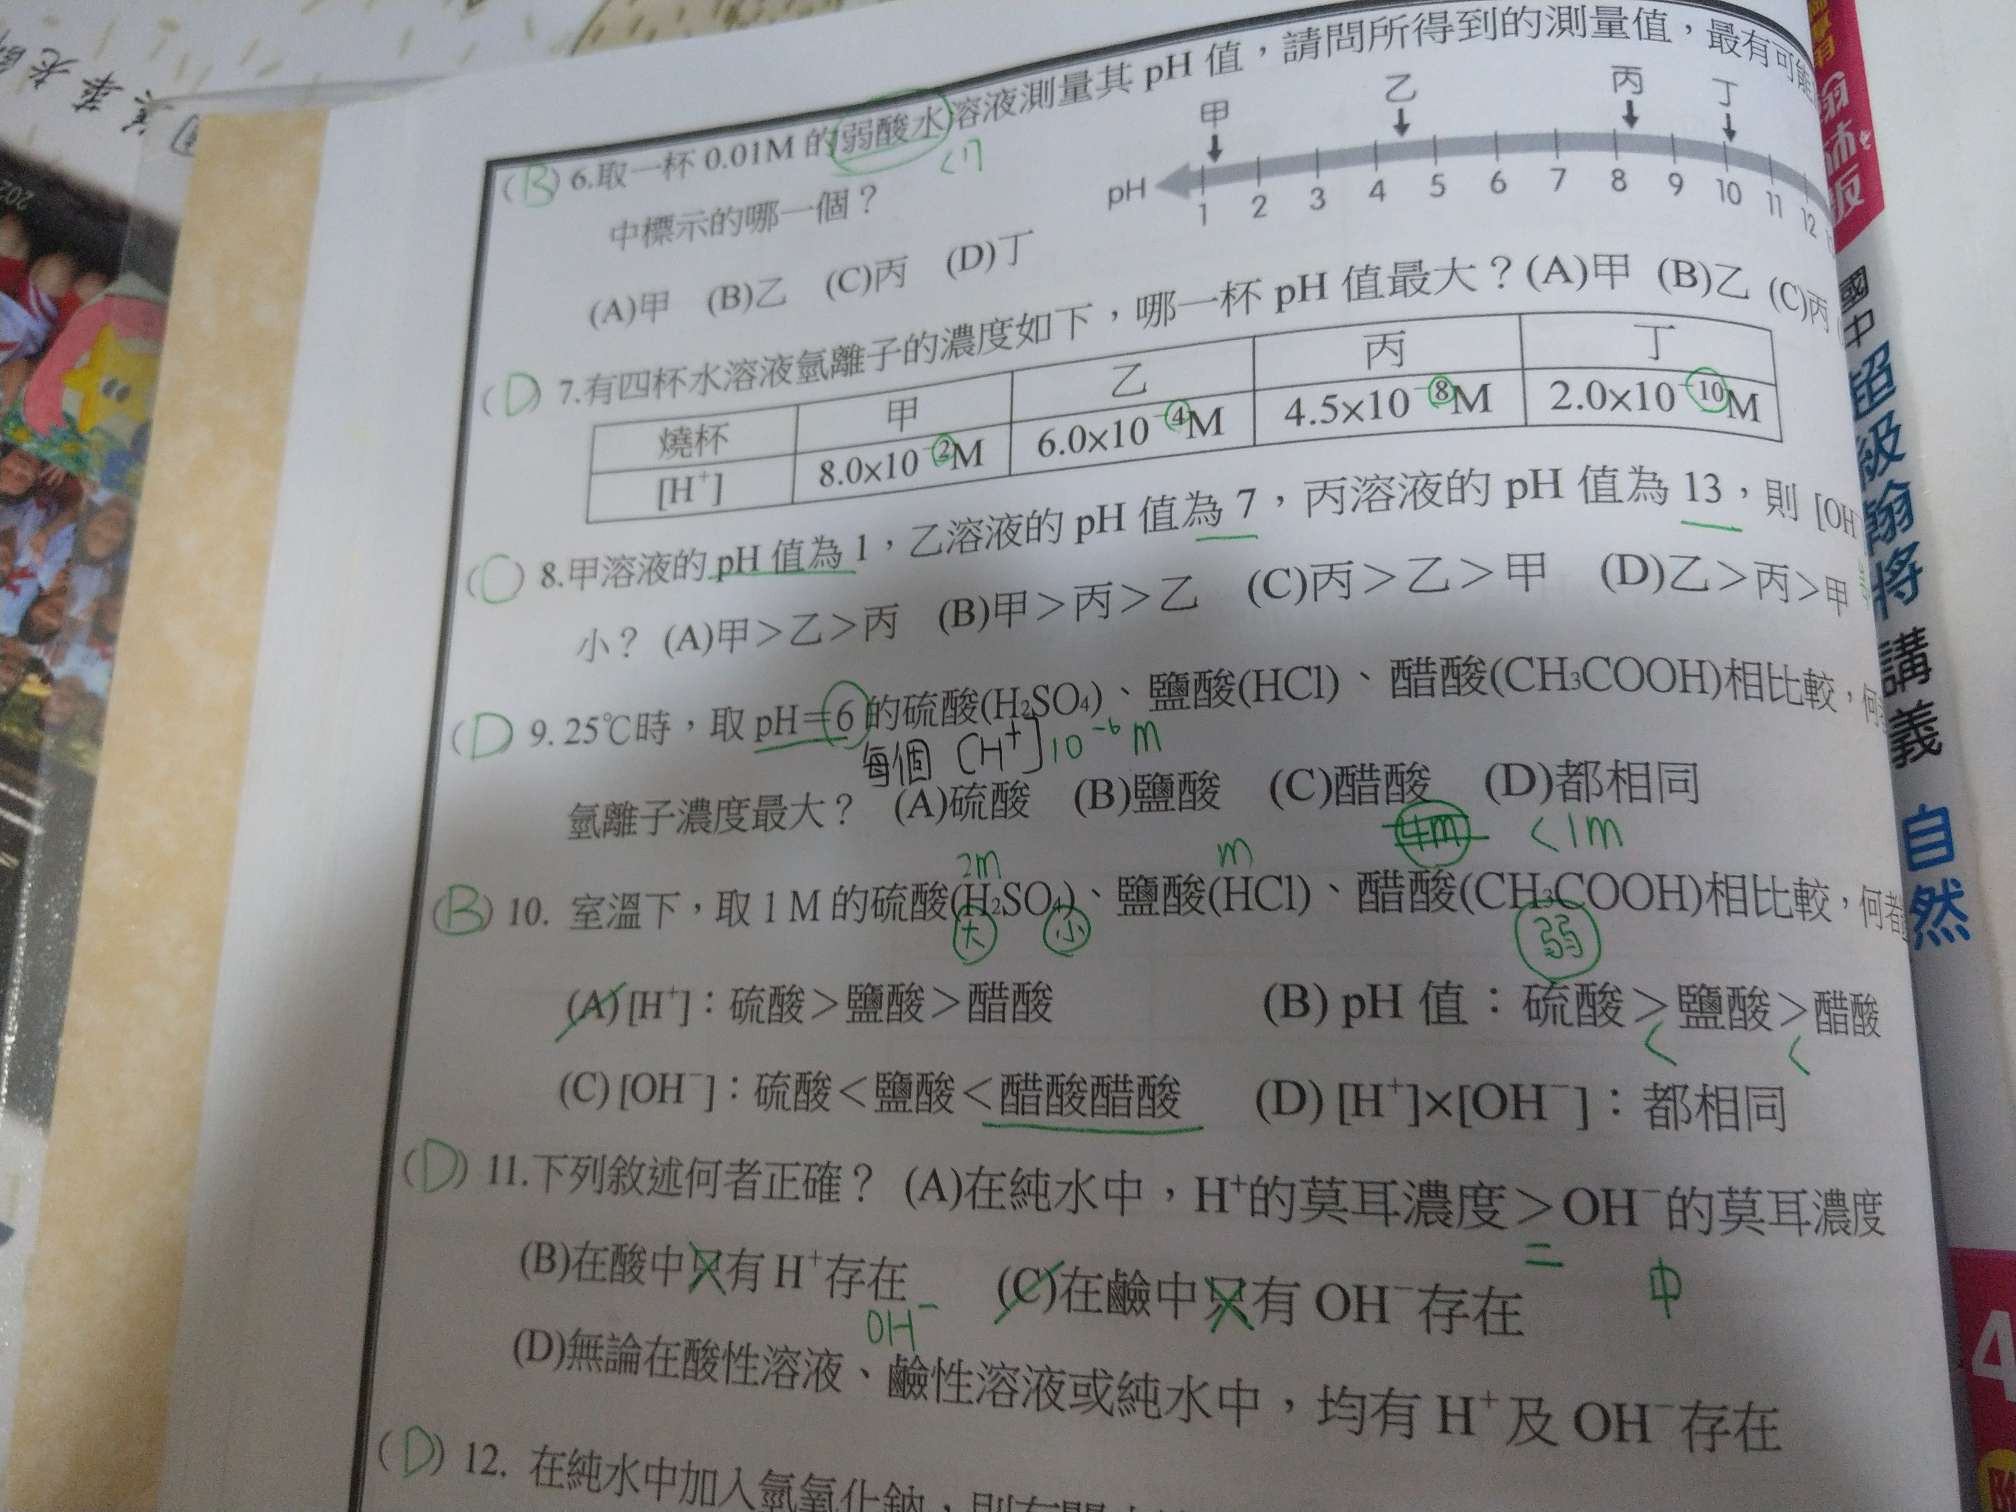 (B) 6.取一杯 0.01M 的弱酸水溶液測量其 pH 值，請問所得到的測量值，最有可能
<7
中標示的哪一個？
甲 乙 丙 丁
pH 1 2 3 4 5 6 7 8 9 10 11 12
(A)甲 (B)乙 (C)丙 (D)丁
(D) 7.有四杯水溶液氫離子的濃度如下，哪一杯 pH 值最大？(A)甲 (B)乙 (C)丙
燒杯 甲 乙 丙 丁
[H⁺] 8.0×10⁻²M 6.0×10⁻⁴M 4.5×10⁻⁸M 2.0×10⁻¹⁰M
(C) 8.甲溶液的 pH 值為 1，乙溶液的 pH 值為 7，丙溶液的 pH 值為 13，則 [OH
小？ (A)甲＞乙＞丙 (B)甲＞丙＞乙 (C)丙＞乙＞甲 (D)乙＞丙＞甲
(D) 9. 25℃時，取 pH=6 的硫酸(H₂SO₄)、鹽酸(HCl)、醋酸(CH₃COOH)相比較，何
每個 [H⁺] 10⁻⁶ m
氫離子濃度最大？ (A)硫酸 (B)鹽酸 (C)醋酸 (D)都相同
2m m 4m <1m
(B) 10. 室溫下，取 1 M 的硫酸(H₂SO₄)、鹽酸(HCl)、醋酸(CH₃COOH)相比較，何者
大 小 弱
(A) [H⁺]：硫酸＞鹽酸＞醋酸 (B) pH 值：硫酸＞鹽酸＞醋酸
< <
(C) [OH⁻]：硫酸＜鹽酸＜醋酸醋酸 (D) [H⁺]×[OH⁻]：都相同
(D) 11.下列敘述何者正確？ (A)在純水中，H⁺的莫耳濃度＞OH⁻的莫耳濃度
= 中
(B)在酸中只有 H⁺存在 (C)在鹼中只有 OH⁻存在
OH⁻
(D)無論在酸性溶液、鹼性溶液或純水中，均有 H⁺及 OH⁻存在
(D) 12. 在純水中加入氫氧化鈉，則
翰林版
國中超級翰將講義 自然
4